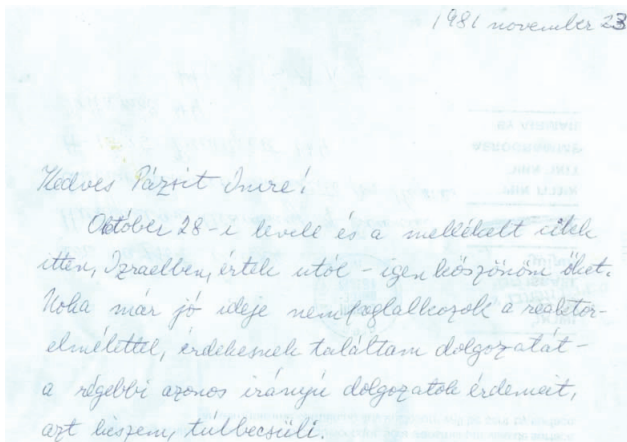 1981 november 23
Kedves Pázsit Imre!
Október 28-i levele és a mellékelt cikk
itten, Izraelben, értek utól - igen köszönöm őket.
Noha már jó ideje nem foglalkozok a reaktor-
elmélettel, érdekesnek találtam dolgozatát -
a régebbi azonos irányú dolgozatok érdemeit,
azt hiszem, túlbecsüli.